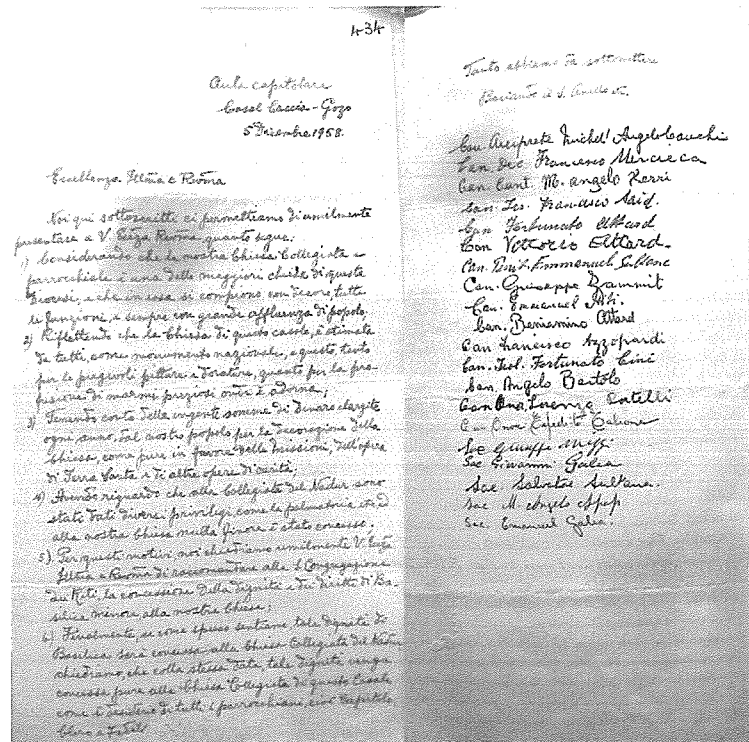 434
Aula capitolare
Casal Caccia - Gozo
5 Dicembre 1958.
Eccellenza Illma e Revma
Noi qui sottoscritti ci permettiamo di umilmente
presentare a V. Eccza Revma quanto segue:
1) Considerando che la nostra Chiesa Collegiata e
parrocchiale è una delle maggiori chiese di questa
Diocesi, e che in essa si compiono con decoro, tutte
le funzioni, e sempre con grande affluenza di popolo,
2) Riflettendo che la Chiesa di questo casale, è stimata
da tutti, come monumento nazionale, e questo, tanto
per le pregevoli pitture e dorature, quanto per la pro-
fusione di marmi preziosi onde è adorna;
3) Tenendo conto delle ingente somme di denaro elargite
ogni anno, dal nostro popolo per la decorazione della
Chiesa, come pure in favore delle Missioni, dell'opera
di Terra Santa e di altre opere di carità;
4) Avendo riguardo che alla Collegiata del Nadur sono
stati dati diversi privilegi, come la palmatoria, etc. ed
alla nostra Chiesa nulla finora è stato concesso.
5) Per questi motivi noi chiediamo umilmente V. Eccza
Illma e Revma di raccomandare alla S. Congregazione
dei Riti, la concessione della dignità e dei diritti di Ba-
silica Minore alla nostra Chiesa;
6) Finalmente, se come spesso sentiamo tale dignità di
Basilica sarà concessa alla Chiesa Collegiata del Nadur
chiediamo, che colla stessa data, tale dignità venga
concessa pure alla Chiesa Collegiata di questo Casale
come è desiderio di tutti i parrocchiani, cioè Capitolo,
Clero e Fedeli
Tanto abbiamo da sottomettere
Baciando il S. Anello etc.
Can. Arciprete Michel' Angelo Cauchi
Can. Dec. Francesco Mercieca
Can. Cant. M. Angelo Xerri
Can. Tes. Francesco Said.
Can. Fortunato Attard
Can. Vittorio Attard.
Can. Penit. Emmanuel Sultana
Can. Giuseppe Zammit
Can. Emmanuel
Can. Beniamino Attard
Can. Francesco Azzopardi
Can. Teol. Fortunato Cini
Can. Angelo Bartolo
Can. Ono. Lorenzo
Can. Onor. Espedito
Sac. Giuseppe
Sac. Giovanni Galea
Sac. Salvatore Sultana.
Sac. M. Angelo Apap
Sac. Emanuel Galea.